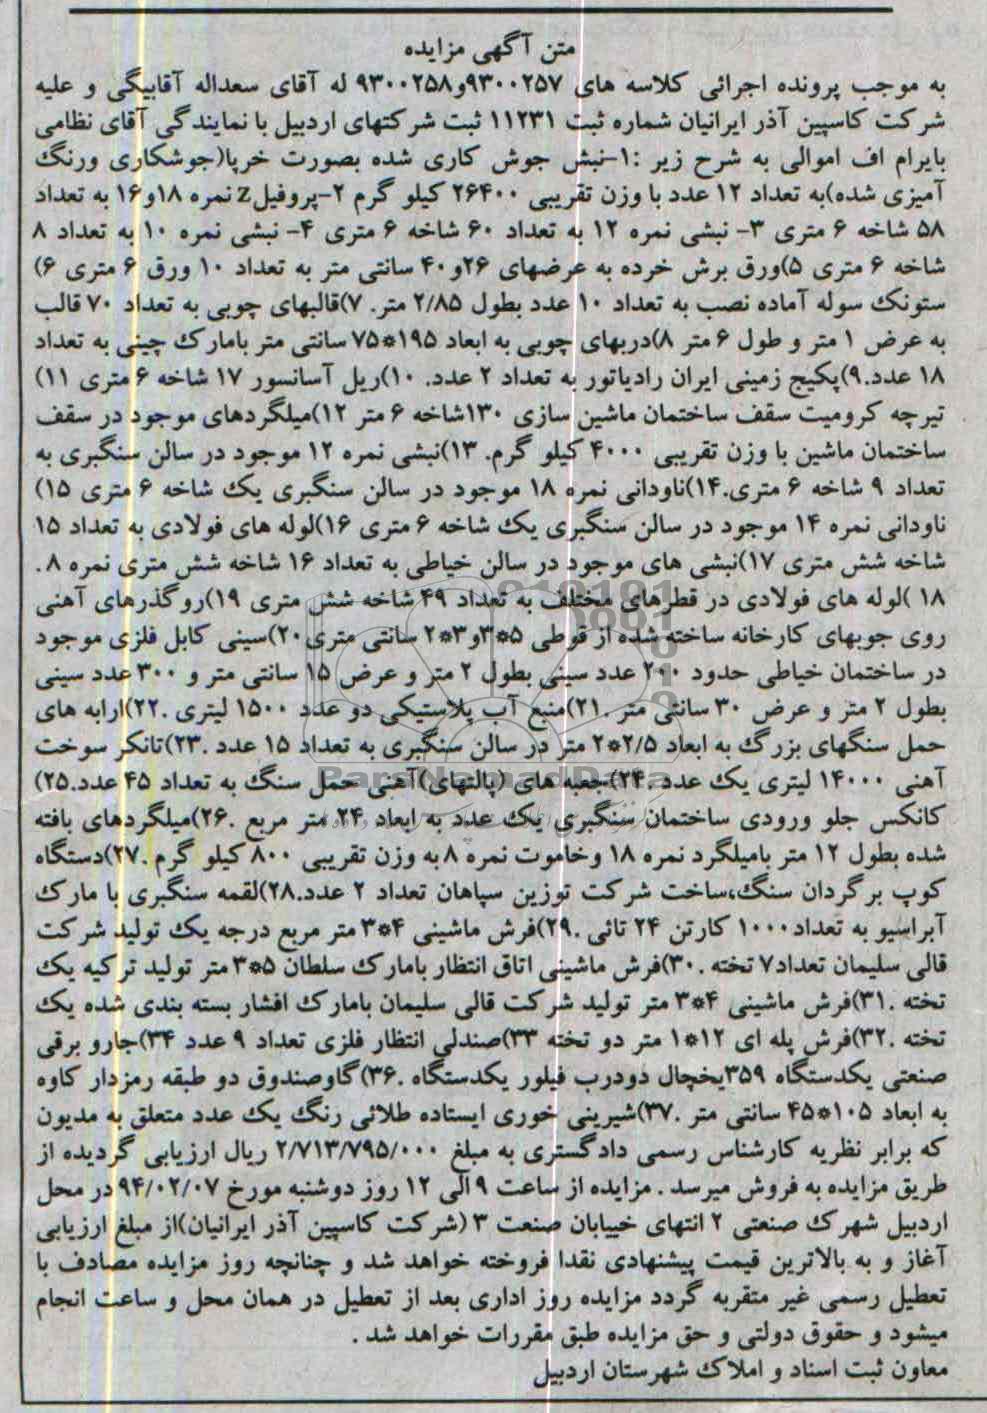 متن آگهی مزایده
به موجب پرونده اجرائی کلاسه های ۹۳۰۰۲۵۷و۹۳۰۰۲۵۸ له آقای سعداله آقابیگی و علیه
شرکت کاسپین آذر ایرانیان شماره ثبت ۱۱۲۳۱ ثبت شرکتهای اردبیل با نمایندگی آقای نظامی
بایرام اف اموالی به شرح زیر :۱-نبش جوش کاری شده بصورت خرپا(جوشکاری ورنگ
آمیزی شده)به تعداد ۱۲ عدد با وزن تقریبی ۲۶۴۰۰ کیلو گرم ۲-پروفیلz نمره ۱۸و۱۶ به تعداد
۵۸ شاخه ۶ متری ۳- نبشی نمره ۱۲ به تعداد ۶۰ شاخه ۶ متری ۴- نبشی نمره ۱۰ به تعداد ۸
شاخه ۶ متری ۵)ورق برش خرده به عرضهای ۲۶و۴۰ سانتی متر به تعداد ۱۰ ورق ۶ متری ۶)
ستونک سوله آماده نصب به تعداد ۱۰ عدد بطول ۲/۸۵ متر. ۷)قالبهای چوبی به تعداد ۷۰ قالب
به عرض ۱ متر و طول ۶ متر ۸)دربهای چوبی به ابعاد ۱۹۵*۷۵ سانتی متر بامارک چینی به تعداد
۱۸ عدد.۹)پکیج زمینی ایران رادیاتور به تعداد ۲ عدد. ۱۰)ریل آسانسور ۱۷ شاخه ۶ متری ۱۱)
تیرچه کرومیت سقف ساختمان ماشین سازی ۱۳۰شاخه ۶ متر ۱۲)میلگردهای موجود در سقف
ساختمان ماشین با وزن تقریبی ۴۰۰۰ کیلو گرم. ۱۳)نبشی نمره ۱۲ موجود در سالن سنگبری به
تعداد ۹ شاخه ۶ متری.۱۴)ناودانی نمره ۱۸ موجود در سالن سنگبری یک شاخه ۶ متری ۱۵)
ناودانی نمره ۱۴ موجود در سالن سنگبری یک شاخه ۶ متری ۱۶)لوله های فولادی به تعداد ۱۵
شاخه شش متری ۱۷)نبشی های موجود در سالن خیاطی به تعداد ۱۶ شاخه شش متری نمره ۸ .
۱۸ )لوله های فولادی در قطرهای مختلف به تعداد ۴۹ شاخه شش متری ۱۹)روگذرهای آهنی
روی جوبهای کارخانه ساخته شده از قوطی ۵*۳و۳*۲ سانتی متری۲۰)سینی کابل فلزی موجود
در ساختمان خیاطی حدود ۲۰۰ عدد سینی بطول ۲ متر و عرض ۱۵ سانتی متر و ۳۰۰ عدد سینی
بطول ۲ متر و عرض ۳۰ سانتی متر .۲۱)منبع آب پلاستیکی دو عدد ۱۵۰۰ لیتری .۲۲)ارابه های
حمل سنگهای بزرگ به ابعاد ۲/۵*۲ متر در سالن سنگبری به تعداد ۱۵ عدد .۲۳)تانکر سوخت
آهنی ۱۴۰۰۰ لیتری یک عدد .۲۴)جعبه های (پالتهای)آهنی حمل سنگ به تعداد ۴۵ عدد.۲۵)
کانکس جلو ورودی ساختمان سنگبری یک عدد به ابعاد ۲۴ متر مربع .۲۶)میلگردهای بافته
شده بطول ۱۲ متر بامیلگرد نمره ۱۸ وخاموت نمره ۸ به وزن تقریبی ۸۰۰ کیلو گرم .۲۷)دستگاه
کوپ برگردان سنگ،ساخت شرکت توزین سپاهان تعداد ۲ عدد.۲۸)لقمه سنگبری با مارک
آبراسیو به تعداد۱۰۰۰ کارتن ۲۴ تائی .۲۹)فرش ماشینی ۴*۳ متر مربع درجه یک تولید شرکت
قالی سلیمان تعداد۷ تخته .۳۰)فرش ماشینی اتاق انتظار بامارک سلطان ۵*۳ متر تولید ترکیه یک
تخته .۳۱)فرش ماشینی ۴*۳ متر تولید شرکت قالی سلیمان بامارک افشار بسته بندی شده یک
تخته .۳۲)فرش پله ای ۱۲*۱ متر دو تخته ۳۳)صندلی انتظار فلزی تعداد ۹ عدد ۳۴)جارو برقی
صنعتی یکدستگاه ۳۵۹یخچال دودرب فیلور یکدستگاه .۳۶)گاوصندوق دو طبقه رمزدار کاوه
به ابعاد ۱۰۵*۴۵ سانتی متر .۳۷)شیرینی خوری ایستاده طلائی رنگ یک عدد متعلق به مدیون
که برابر نظریه کارشناس رسمی دادگستری به مبلغ ۲/۷۱۳/۷۹۵/۰۰۰ ریال ارزیابی گردیده از
طریق مزایده به فروش میرسد . مزایده از ساعت ۹ الی ۱۲ روز دوشنبه مورخ ۹۴/۰۲/۰۷ در محل
اردبیل شهرک صنعتی ۲ انتهای خییابان صنعت ۳ (شرکت کاسپین آذر ایرانیان)از مبلغ ارزیابی
آغاز و به بالاترین قیمت پیشنهادی نقدا فروخته خواهد شد و چنانچه روز مزایده مصادف با
تعطیل رسمی غیر متقربه گردد مزایده روز اداری بعد از تعطیل در همان محل و ساعت انجام
میشود و حقوق دولتی و حق مزایده طبق مقررات خواهد شد .
معاون ثبت اسناد و املاک شهرستان اردبیل
ParsNamadData